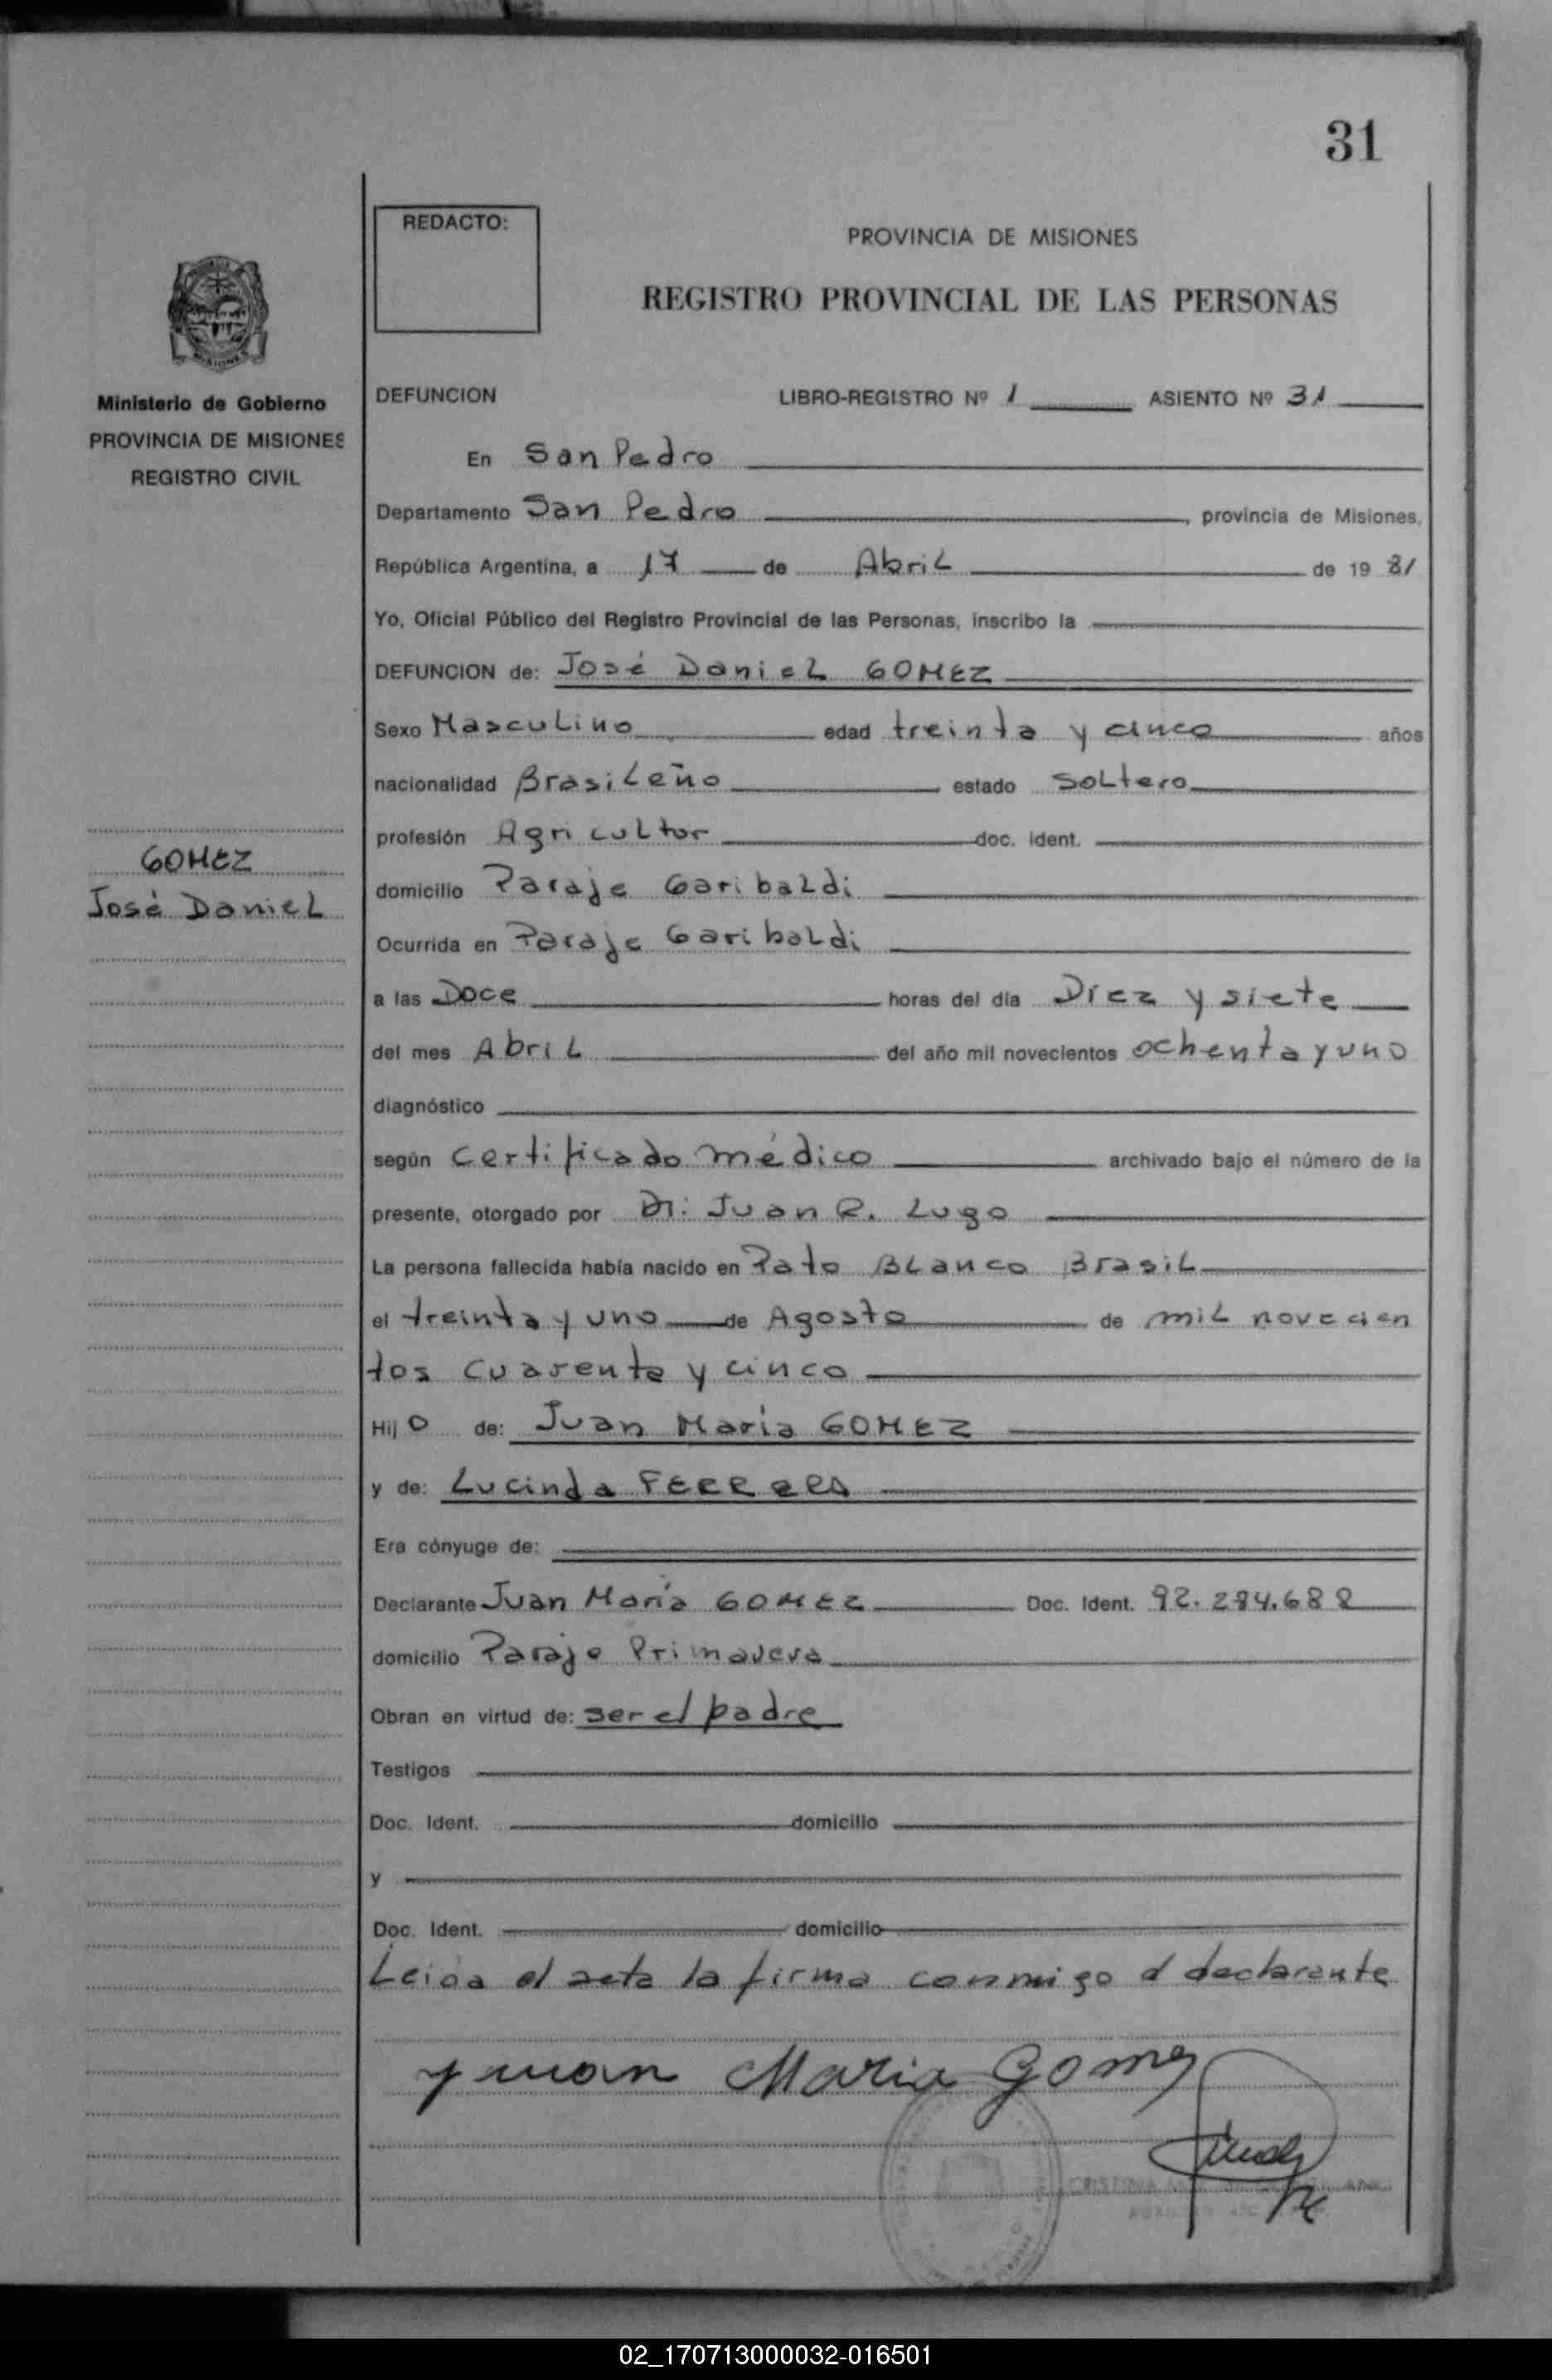 31
REDACTO:
PROVINCIA DE MISIONES
REGISTRO PROVINCIAL DE LAS PERSONAS
Ministerio de Gobierno
PROVINCIA DE MISIONES
REGISTRO CIVIL
DEFUNCION LIBRO-REGISTRO Nº 1 ASIENTO Nº 31
En San Pedro
Departamento San Pedro, provincia de Misiones,
República Argentina, a 17 de Abril de 19 81
Yo, Oficial Público del Registro Provincial de las Personas, inscribo la
DEFUNCION de: José Daniel GOMEZ
Sexo Masculino edad treinta y cinco años
nacionalidad Brasileño estado Soltero
profesión Agricultor doc. ident.
GOMEZ
José Daniel
domicilio Paraje Garibaldi
Ocurrida en Paraje Garibaldi
a las Doce horas del día Diez y siete
del mes Abril del año mil novecientos ochenta y uno
diagnóstico
según certificado médico archivado bajo el número de la
presente, otorgado por Dr: Juan R. Lugo
La persona fallecida había nacido en Pato Blanco Brasil
el treinta y uno de Agosto de mil novecien
tos cuarenta y cinco
Hijo de: Juan María GOMEZ
y de: Lucinda
Era cónyuge de:
Declarante Juan María GOMEZ Doc. Ident.
domicilio Paraje Primavera
Obran en virtud de: ser el padre
Testigos
Doc. Ident. domicilio
y
Doc. Ident. domicilio
Leida el acta la firma conmigo el declarante
Juan Maria Gomez
02_170713000032-016501